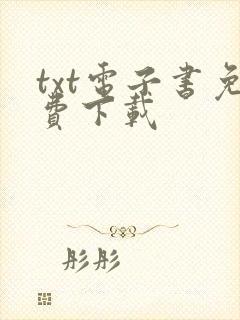 txt電子書免
費下載
彤彤